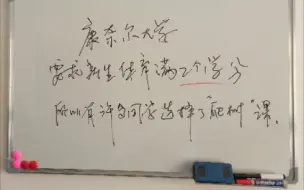 康奈尔大学
要求新生体育满2个学分
所以有许多同学选择了"爬树"课.